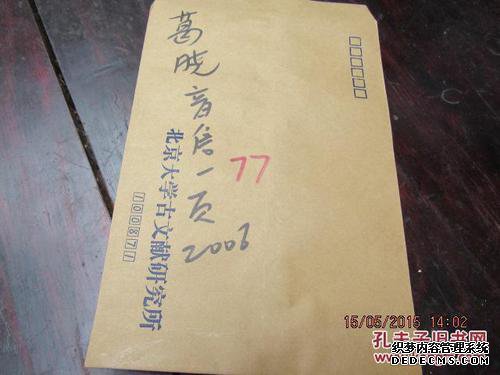 葛晓音信一页
2006
77
北京大学古文献研究所
100871
15/05/2015 14:02
孔夫子旧书网
织梦内容管理系统
DEDECMS.COM